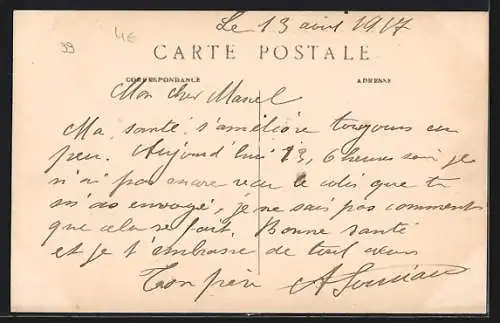 39 4€ Le 13 avril 1917
CARTE POSTALE
CORRESPONDANCE ADRESSE
Mon cher Marcel
Ma santé s'améliore toujours un
peu. Aujourd'hui 13, 6 heures soir je
n'ai pas encore reçu le colis que tu
m'as envoyé, je ne sais pas comment
que cela se fait. Bonne santé
et je t'embrasse de tout cœur
Ton père